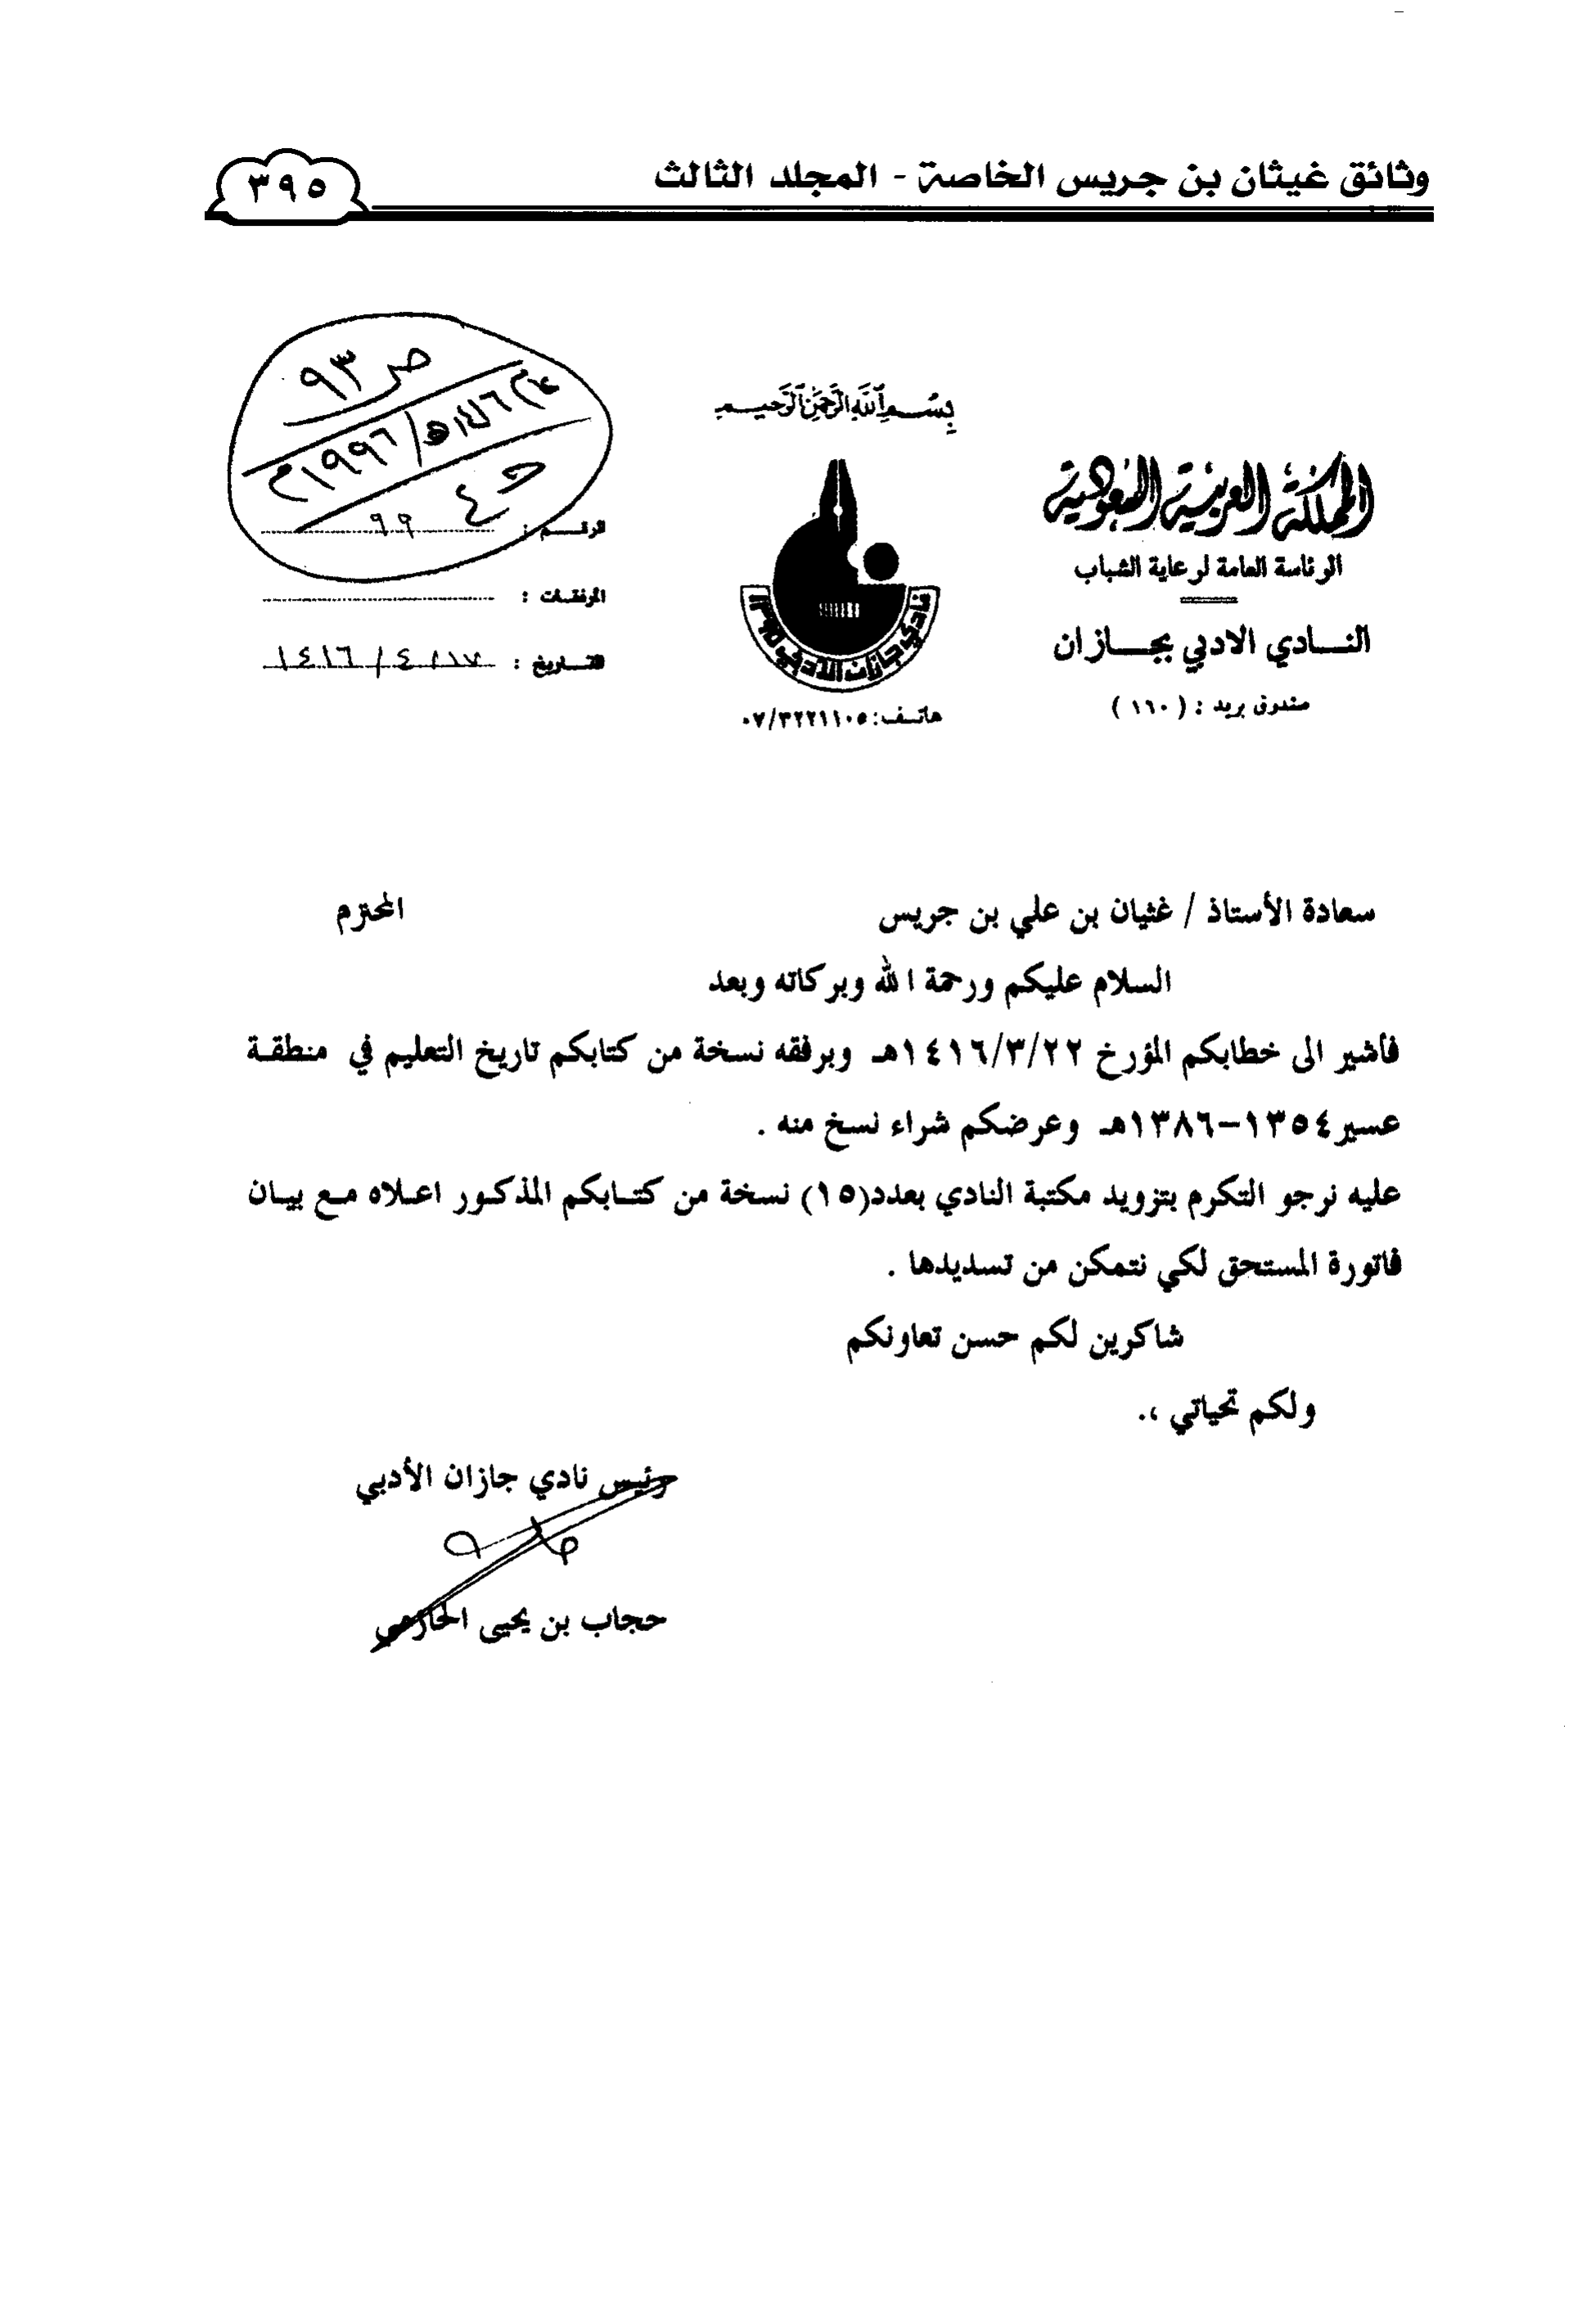 وثائق غيثان بن جريس الخاصة - المجلد الثالث
٣٩٥
بسم الله الرحمن الرحيم
المملكة العربية السعودية
الرئاسة العامة لرعاية الشباب
النادي الادبي بجازان
صندوق بريد : ( ١٦٠ )
نادي جازان الأدبي ١٣٩٥
هاتف: ٠٧/٣٢٢١١٠٥
ص ٩٣
١٤١٦هـ/ ١٩٩٦م
الرقم : ٩٩
المرفقات :
التاريخ : ١٧ / ٤ / ١٤١٦
سعادة الأستاذ / غثيان بن علي بن جريس المحترم
السلام عليكم ورحمة الله وبركاته وبعد
فاشير الى خطابكم المؤرخ ١٤١٦/٣/٢٢هـ وبرفقه نسخة من كتابكم تاريخ التعليم في منطقة
عسير١٣٥٤-١٣٨٦هـ وعرضكم شراء نسخ منه .
عليه نرجو التكرم بتزويد مكتبة النادي بعدد(١٥) نسخة من كتابكم المذكور اعلاه مع بيان
فاتورة المستحق لكي نتمكن من تسديدها .
شاكرين لكم حسن تعاونكم
ولكم تحياتي ،.
رئيس نادي جازان الأدبي
حجاب بن يحيى الحازمي